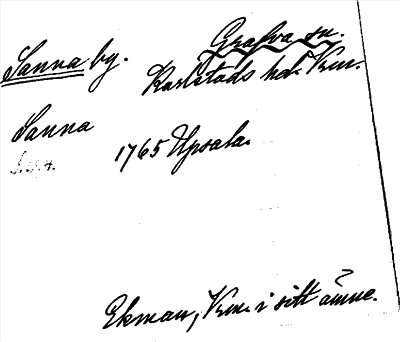 Sanna by.
Grafva sn.
Karlstads hd. Vrm.
Sanna
1765 Upsala.
Ekman, Vrm. i sitt ämne.